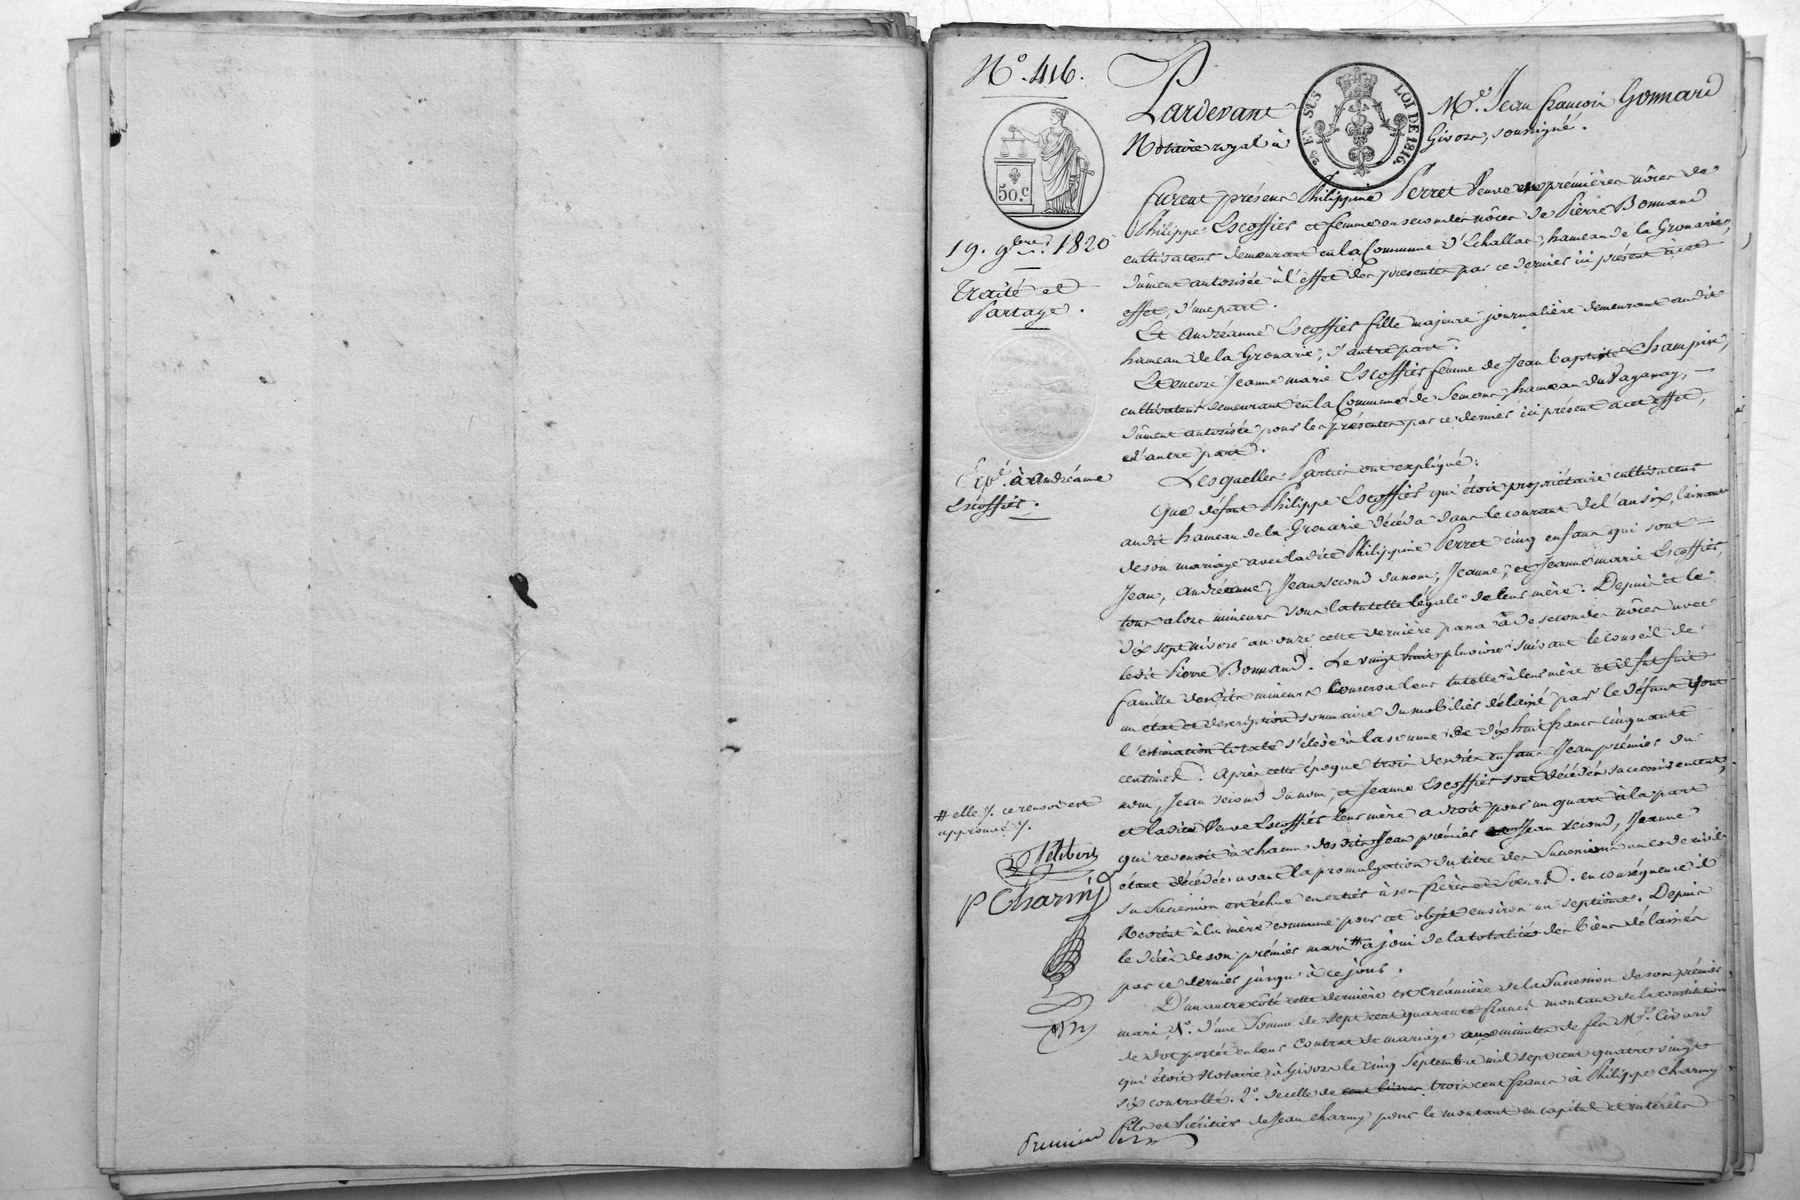 N.º 416.
Pardevant Mᵉ. Jean françois Gonnard
Notaire royal à Givors, soussigné.
25 EN SUS LOI DE 1816.
50.c
19. 9bre. 1820
Traité et
Partage.
Expé. à andréanne
Escoffier.
furent présens Philippine Perret Veuve en premières nôces de
Philippe Escoffier et femme en secondes nôces de Pierre Bonnand
cultivateur demeurant en la Commune d'Echallas, hameau de la Gronarie,
dûment autorisée à l'effet des présentes par ce dernier ici présent à cet
effet, d'une part.
Et Andréanne Escoffier fille majeure journalière demeurant audit
hameau de la Gronarie, d'autre part.
Et encore Jeanne marie Escoffier femme de Jean baptiste Champin,
cultivateur demeurant en la Commune de Semons, hameau du Paganay,
dûment autorisée pour les présentes par ce dernier ici présent à cet effet,
d'autre part.
Lesquelles Parties ont expliqué:
Que défunt Philippe Escoffier qui étoit propriétaire cultivateur
audit hameau de la Gronarie décéda dans le courant de l'an six, laissant
de son mariage avec ladite Philippine Perret cinq enfans qui sont
Jean, andréanne, Jean second du nom, Jeanne, et Jeanne marie Escoffier
tous alors mineurs sous la tutelle légale de leur mère. Depuis et le
dix sept nivose an onze cette dernière passa à de secondes nôces avec
ledit Pierre Bonnand. Le vingt huit pluviose suivant le conseil de
famille desdits mineurs conserva leur tutelle à leur mère et il fut fait
un état et description sommaire du mobilier délaissé par le défunt dont
l'estimation totale s'élève à la somme de dix huit francs cinquante
centimes. Après cette époque trois desdits enfans Jean premier du
nom, Jean second du nom, et Jeanne Escoffier sont décédés successivement,
et ladite Veuve Escoffier leur mère a droit pour un quart à la part
qui revenoit à chacun desdits Jean premier et Jean second, Jeanne
étant décédée avant la promulgation du titre des Successions au code civil
sa Succession est échue en entier à ses frères et Sœurs. en conséquence il
Revient à la mère commune pour cet objet environ un septième. Depuis
le décès de son premier mari # a joui de la totalité des biens délaissés
par ce dernier jusqu'à ce jour.
# elle /. ce renvoi est
approuvé /.
Petitbon
P Charmy
D'un autre côté cette dernière est Créancière de la Succession de son premier
mari 1º. d'une Somme de sept cent quarante francs montant de la constitution
de dot portée en leur contrat de mariage aux minutes de feu Mᵉ. Civard
qui étoit Notaire à Givors le cinq Septembre mil sept cent quatre vingt
six controllé. 2º. de celle de cent livres trois cent francs à Philippe Charmy
fils et héritier de Jean Charmy pour le montant en capital et intérêts
Premier